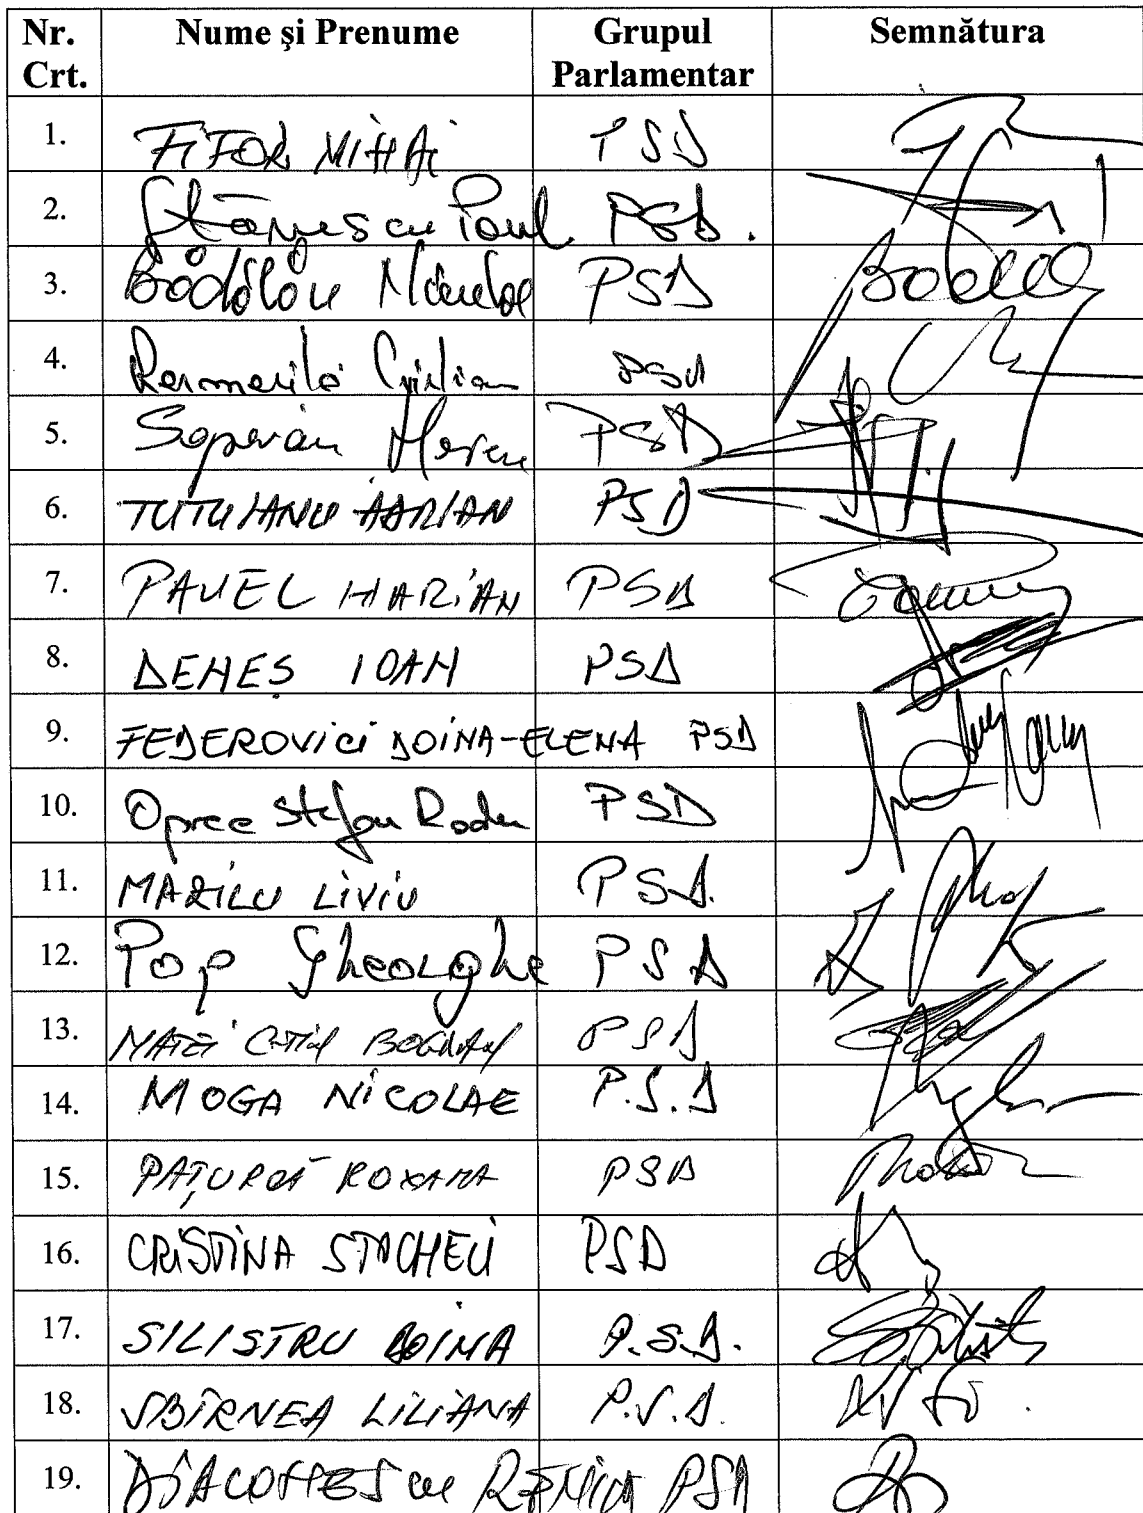 Nr. Crt. Nume și Prenume Grupul Parlamentar Semnătura
1. FIFOR MIHAI PSD
2. Stănescu Paul PSD.
3. Bădălău Niculae PSD
4. Cristian PSD
5. PSD
6. TUTUIANU ADRIAN PSD
7. PAVEL MARIAN PSD
8. DENEȘ IOAN PSD
9. FEDEROVICI DOINA-ELENA PSD
10. Oprea Stefan Radu PSD
11. MAZILU LIVIU PSD.
12. Pop Gheorghe PSD
13. MATEI BOGDAN PSD
14. MOGA NICOLAE P.S.D
15. PAȚURCĂ ROXANA PSD
16. CRISTINA STOCHECI PSD
17. SILISTRU DOINA P.S.D.
18. SBÎRNEA LILIANA P.S.D.
19. PSD